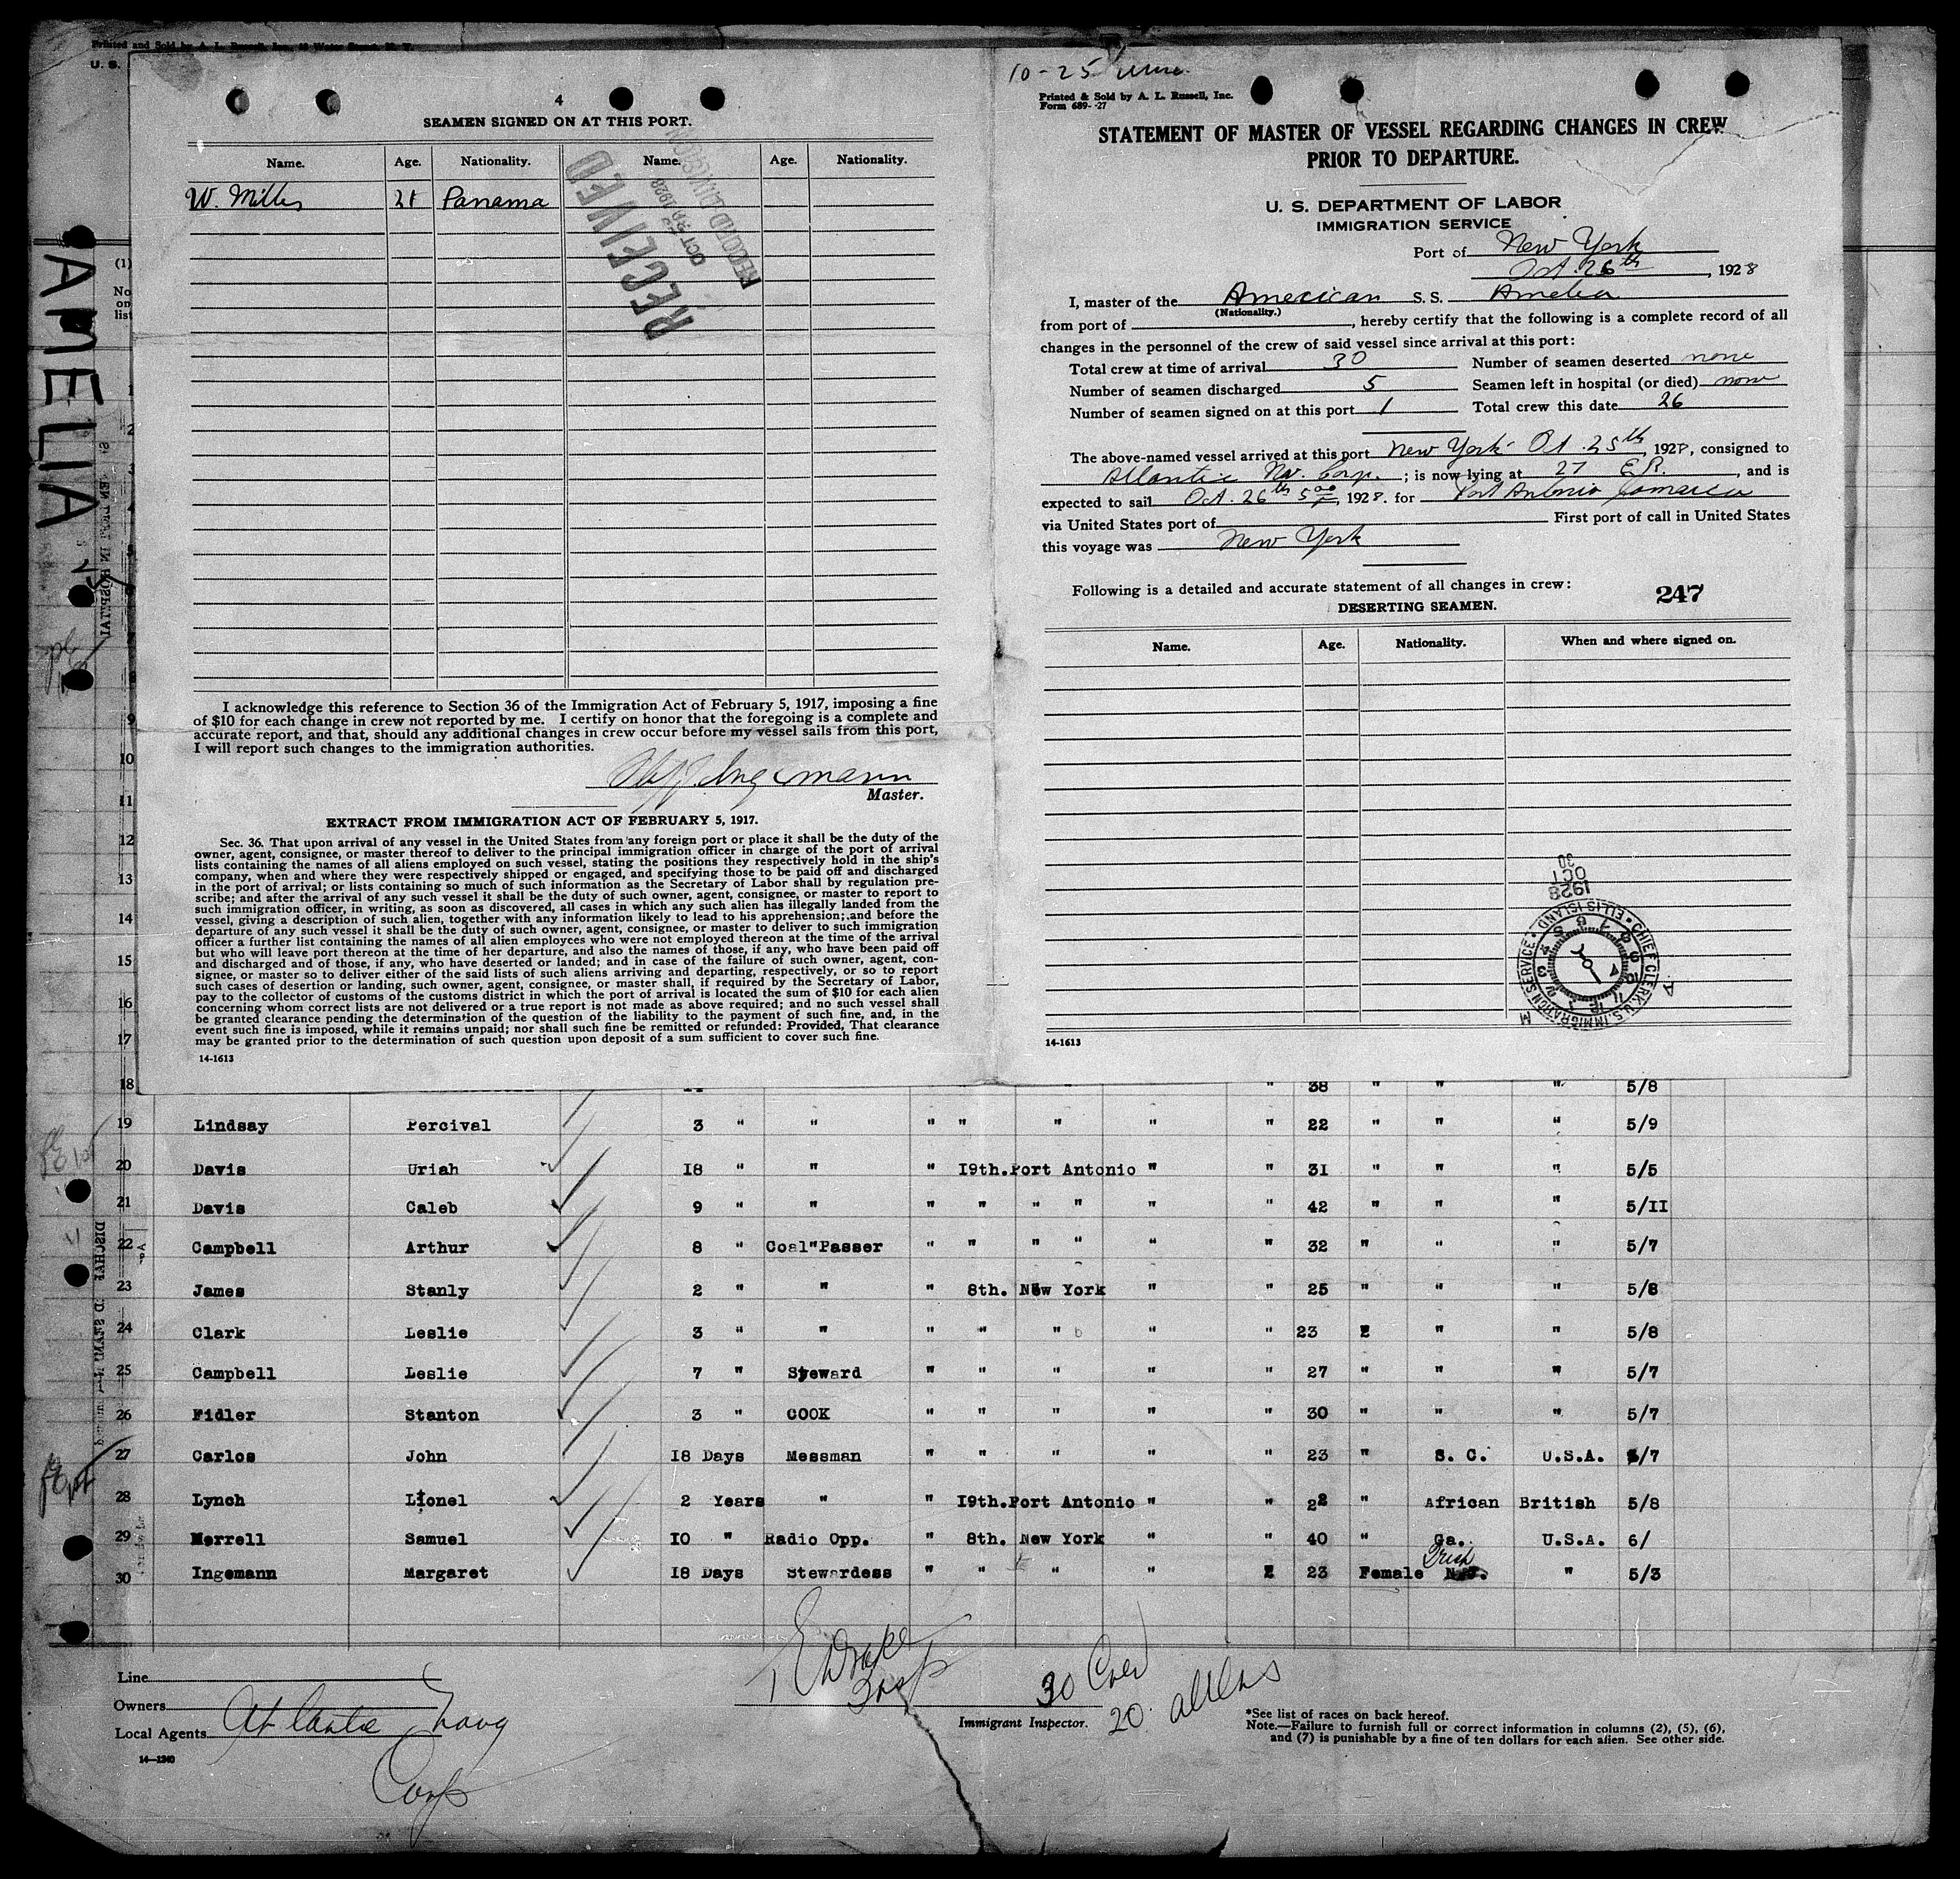 Printed and Sold by A. L. Russell, Inc.,
U. S.
AMELIA
4
SEAMEN SIGNED ON AT THIS PORT.
Name. Age. Nationality. Name. Age. Nationality.
W. Panama
RECEIVED
OCT 1928
RECORD DIVISION
I acknowledge this reference to Section 36 of the Immigration Act of February 5, 1917, imposing a fine
of $10 for each change in crew not reported by me. I certify on honor that the foregoing is a complete and
accurate report, and that, should any additional changes in crew occur before my vessel sails from this port,
I will report such changes to the immigration authorities.
Ingemann
Master.
EXTRACT FROM IMMIGRATION ACT OF FEBRUARY 5, 1917.
Sec. 36. That upon arrival of any vessel in the United States from any foreign port or place it shall be the duty of the
owner, agent, consignee, or master thereof to deliver to the principal immigration officer in charge of the port of arrival
lists containing the names of all aliens employed on such vessel, stating the positions they respectively hold in the ship's
company, when and where they were respectively shipped or engaged, and specifying those to be paid off and discharged
in the port of arrival; or lists containing so much of such information as the Secretary of Labor shall by regulation pre-
scribe; and after the arrival of any such vessel it shall be the duty of such owner, agent, consignee, or master to report to
such immigration officer, in writing, as soon as discovered, all cases in which any such alien has illegally landed from the
vessel, giving a description of such alien, together with any information likely to lead to his apprehension; and before the
departure of any such vessel it shall be the duty of such owner, agent, consignee, or master to deliver to such immigration
officer a further list containing the names of all alien employees who were not employed thereon at the time of the arrival
but who will leave port thereon at the time of her departure, and also the names of those, if any, who have been paid off
and discharged and of those, if any, who have deserted or landed; and in case of the failure of such owner, agent, con-
signee, or master so to deliver either of the said lists of such aliens arriving and departing, respectively, or so to report
such cases of desertion or landing, such owner, agent, consignee, or master shall, if required by the Secretary of Labor,
pay to the collector of customs of the customs district in which the port of arrival is located the sum of $10 for each alien
concerning whom correct lists are not delivered or a true report is not made as above required; and no such vessel shall
be granted clearance pending the determination of the question of the liability to the payment of such fine, and, in the
event such fine is imposed, while it remains unpaid; nor shall such fine be remitted or refunded: Provided, That clearance
may be granted prior to the determination of such question upon deposit of a sum sufficient to cover such fine.
14-1613
10-25
Printed & Sold by A. L. Russell, Inc.
Form 689--27
STATEMENT OF MASTER OF VESSEL REGARDING CHANGES IN CREW
PRIOR TO DEPARTURE.
U. S. DEPARTMENT OF LABOR
IMMIGRATION SERVICE
Port of New York
Oct. 26th, 1928
I, master of the American S. S. Amelia
(Nationality.)
from port of , hereby certify that the following is a complete record of all
changes in the personnel of the crew of said vessel since arrival at this port:
Total crew at time of arrival 30 Number of seamen deserted none
Number of seamen discharged 5 Seamen left in hospital (or died) none
Number of seamen signed on at this port 1 Total crew this date 26
The above-named vessel arrived at this port New York Oct. 25th, 1928, consigned to
Atlantic Nav. Corp. ; is now lying at 27 E.R. , and is
expected to sail Oct. 26th 5 00 P, 1928. for Port Antonio Jamaica
via United States port of First port of call in United States
this voyage was New York
Following is a detailed and accurate statement of all changes in crew:
247
DESERTING SEAMEN.
Name. Age. Nationality. When and where signed on.
1928
OCT
30
CHIEF CLERK U.S. IMMIGRATION SERVICE • ELLIS ISLAND •
14-1613
18 38 " " " 5/8
19 Lindsay Percival 3 " " " " " " " 22 " " " 5/9
20 Davis Uriah 18 " " " 19th. Port Antonio " " 31 " " " 5/5
21 Davis Caleb 9 " " " " " " " " 42 " " " 5/11
22 Campbell Arthur 8 " Coal Passer " " " " " " 32 " " " 5/7
23 James Stanly 2 " " " 8th. New York " " 25 " " " 5/8
24 Clark Leslie 3 " " " " " " " 23 " " 5/8
25 Campbell Leslie 7 " Steward " " " " " 27 " " " 5/7
26 Fidler Stanton 3 " COOK " " " " " 30 " " " 5/7
27 Carlos John 18 Days Messman " " " " " 23 " S. C. U.S.A. 5/7
28 Lynch Lionel 2 Years " " 19th. Port Antonio " " 22 " African British 5/8
29 Merrell Samuel 10 " Radio Opp. " 8th. New York " " 40 " Ga. U.S.A. 6/
30 Ingemann Margaret 18 Days Stewardess " " " " 23 Female Irish " 5/3
Line
Owners
Local Agents Atlantic Navg
Corp
14—1240
Drake
Insp
Immigrant Inspector.
30 Crew
20. aliens
*See list of races on back hereof.
Note.—Failure to furnish full or correct information in columns (2), (5), (6),
and (7) is punishable by a fine of ten dollars for each alien. See other side.